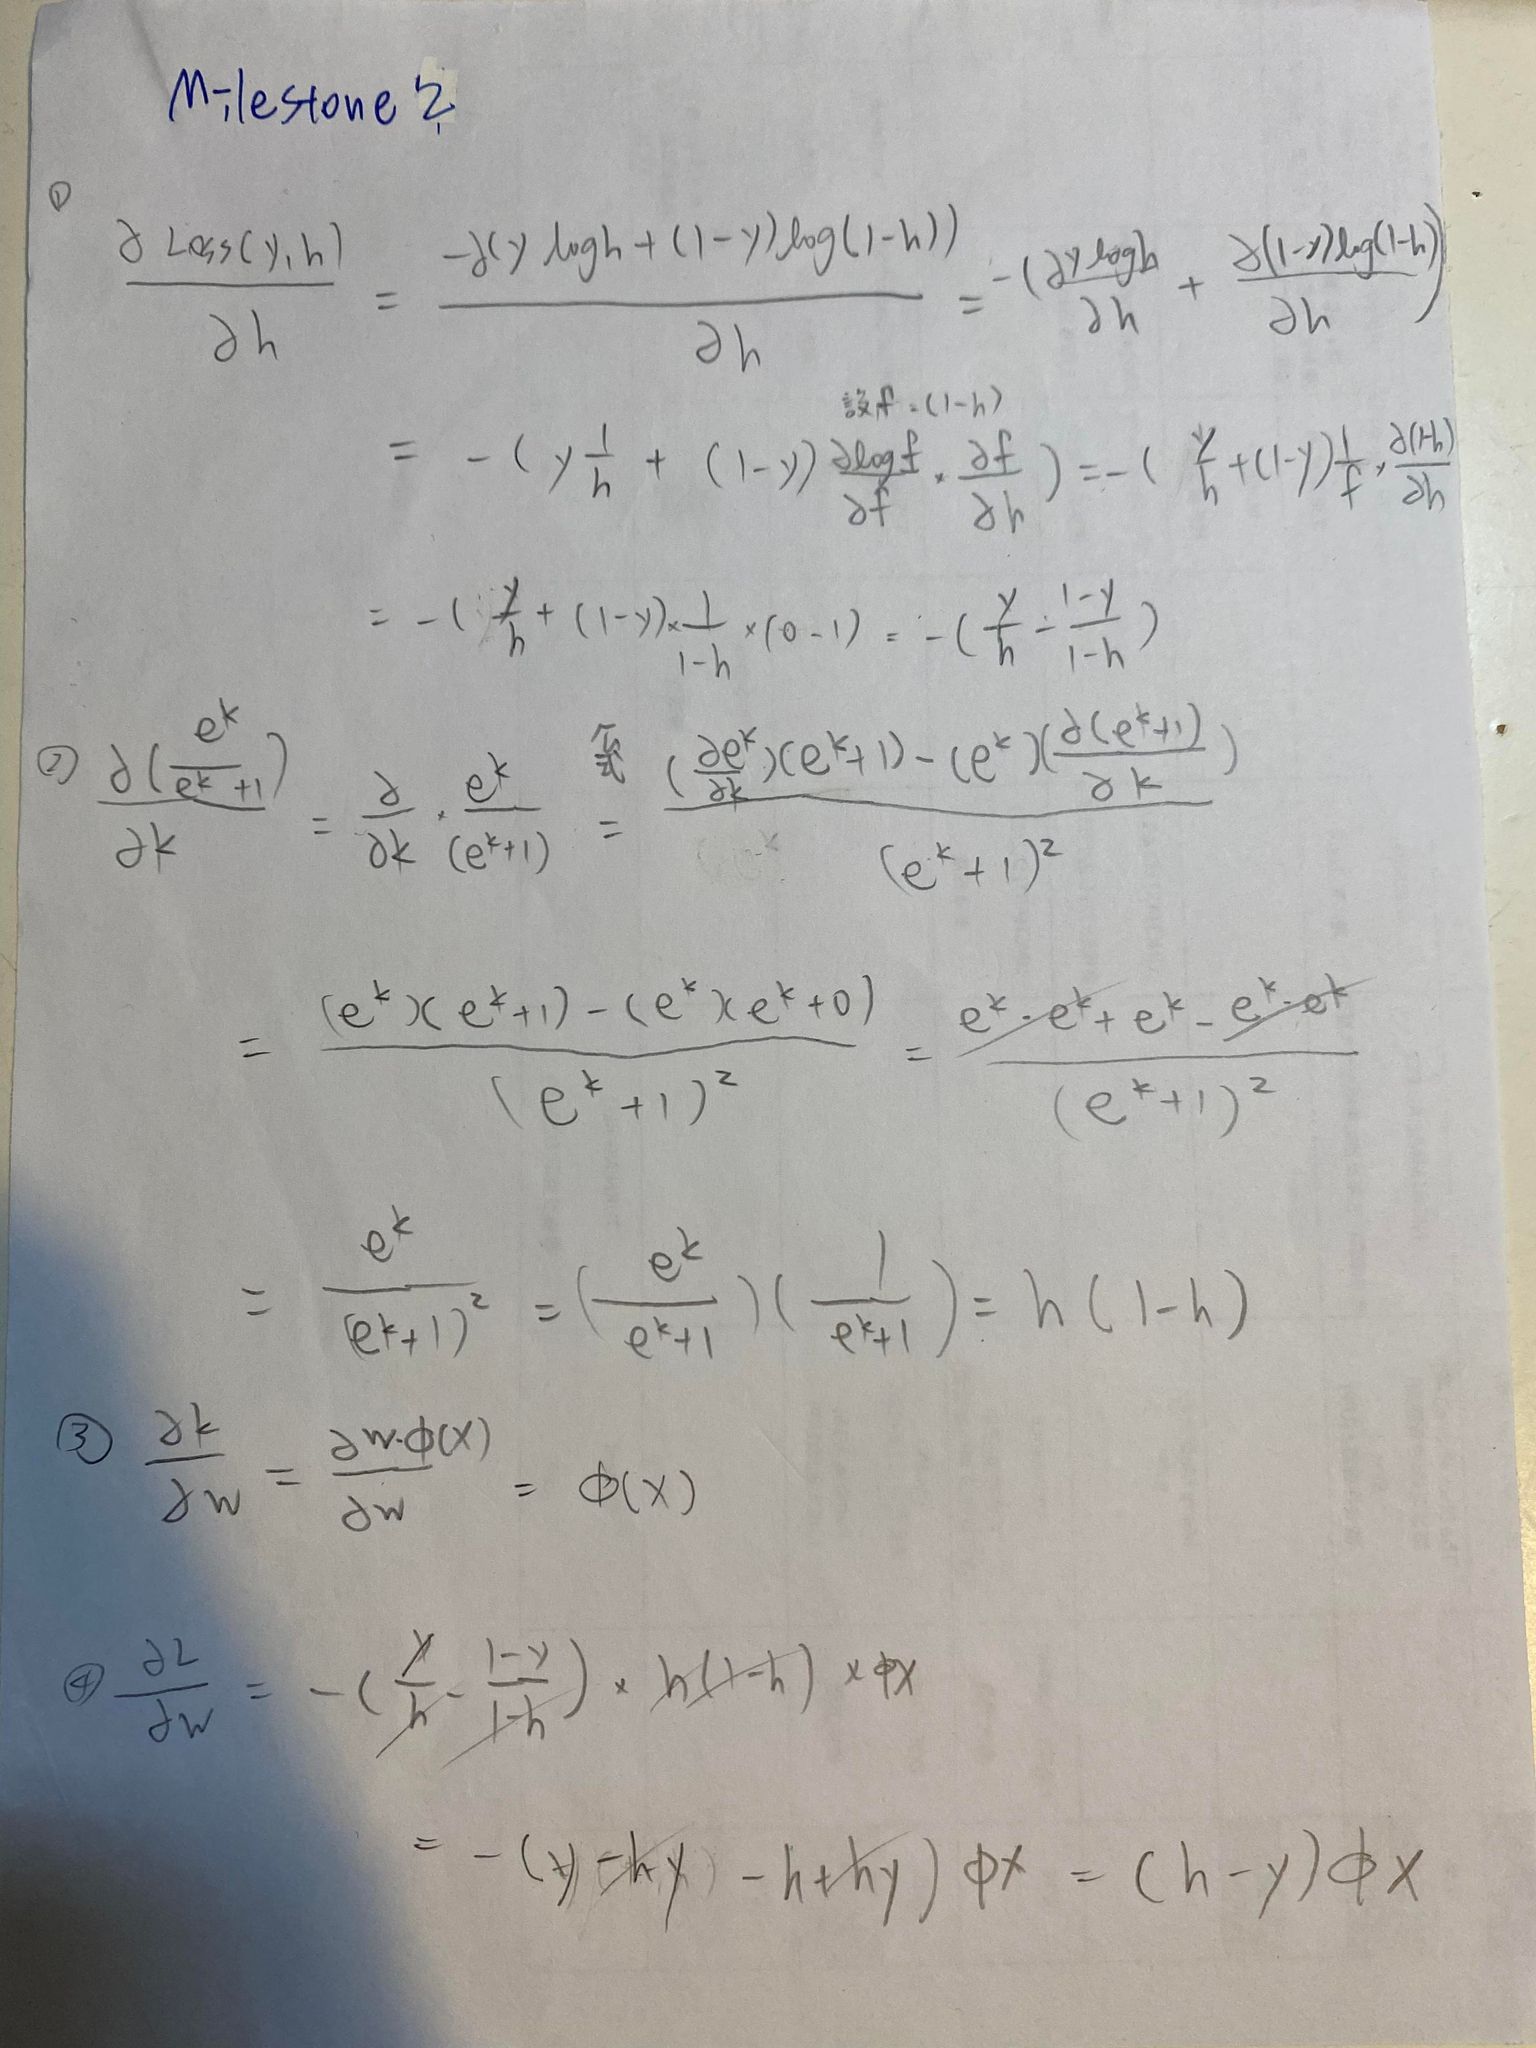 Milestone 2
① ∂ Loss(y,h) / ∂h = -∂(y logh + (1-y) log(1-h)) / ∂h = -(∂y logh / ∂h + ∂(1-y)log(1-h) / ∂h)
設f=(1-h)
= -( y 1/h + (1-y) ∂logf/∂f · ∂f/∂h ) = -( y/h + (1-y) 1/f · ∂(1-h)/∂h
= -( y/h + (1-y) × 1/(1-h) × (0-1) = -( y/h - (1-y)/(1-h) )
② ∂(e^k/(e^k+1)) / ∂k = ∂/∂k · e^k/(e^k+1) = ((∂e^k/∂k)(e^k+1) - (e^k)(∂(e^k+1)/∂k)) / (e^k+1)²
= ((e^k)(e^k+1) - (e^k)(e^k+0)) / (e^k+1)² = (e^k·e^k + e^k - e^k·e^k) / (e^k+1)²
= e^k/(e^k+1)² = (e^k/(e^k+1))(1/(e^k+1)) = h(1-h)
③ ∂k/∂w = ∂w·φ(x)/∂w = φ(x)
④ ∂L/∂w = -( y/h - (1-y)/(1-h) ) × h(1-h) × φx
= -(y - hy) - h + hy) φx = (h-y) φx